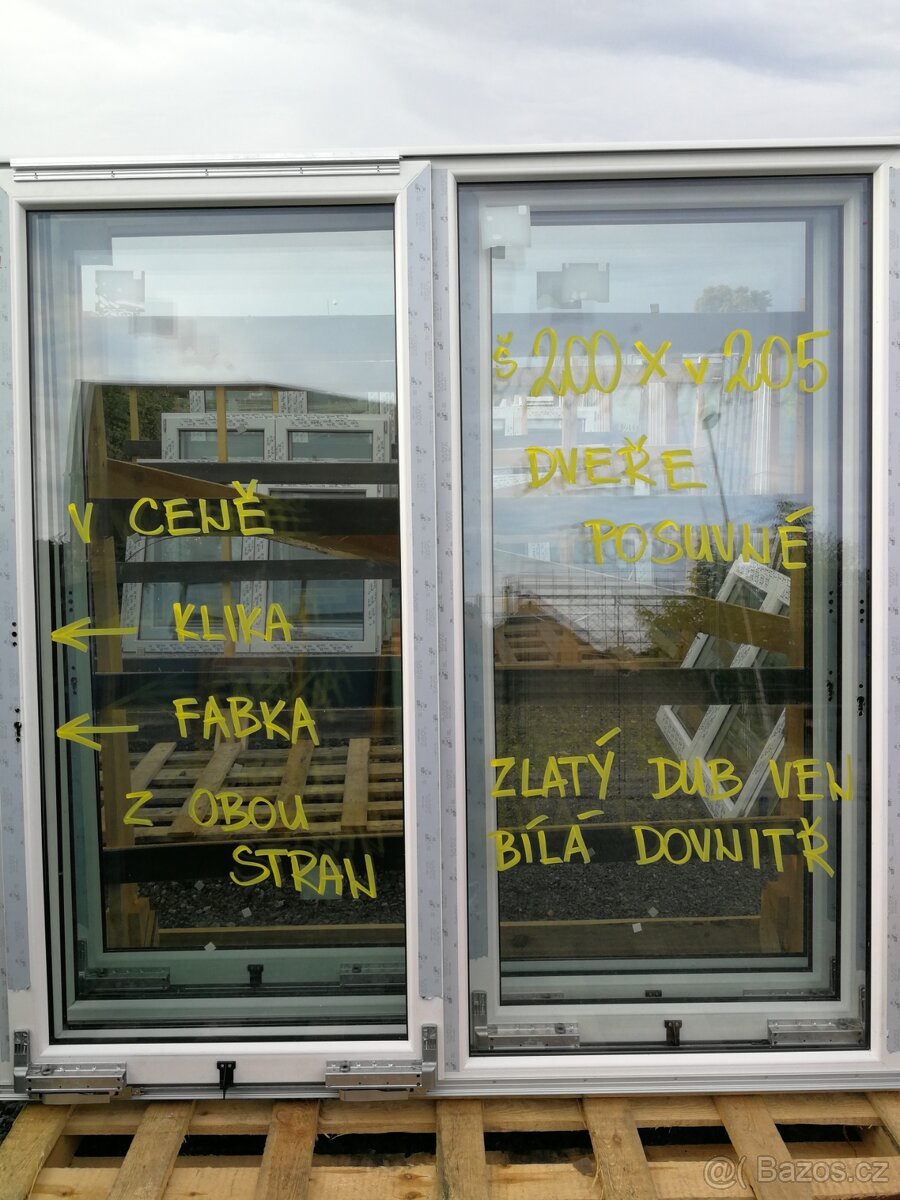 V CENĚ
KLIKA
FABKA
Z OBOU
STRAN
š 200 x v 205
DVEŘE
POSUVNÉ
ZLATÝ DUB VEN
BÍLÁ DOVNITŘ
@( Bazos.cz